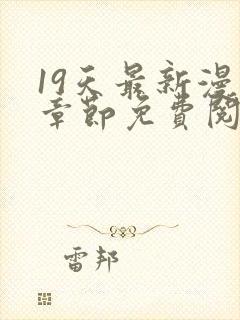 19天最新漫
章節免費閱
雷邦